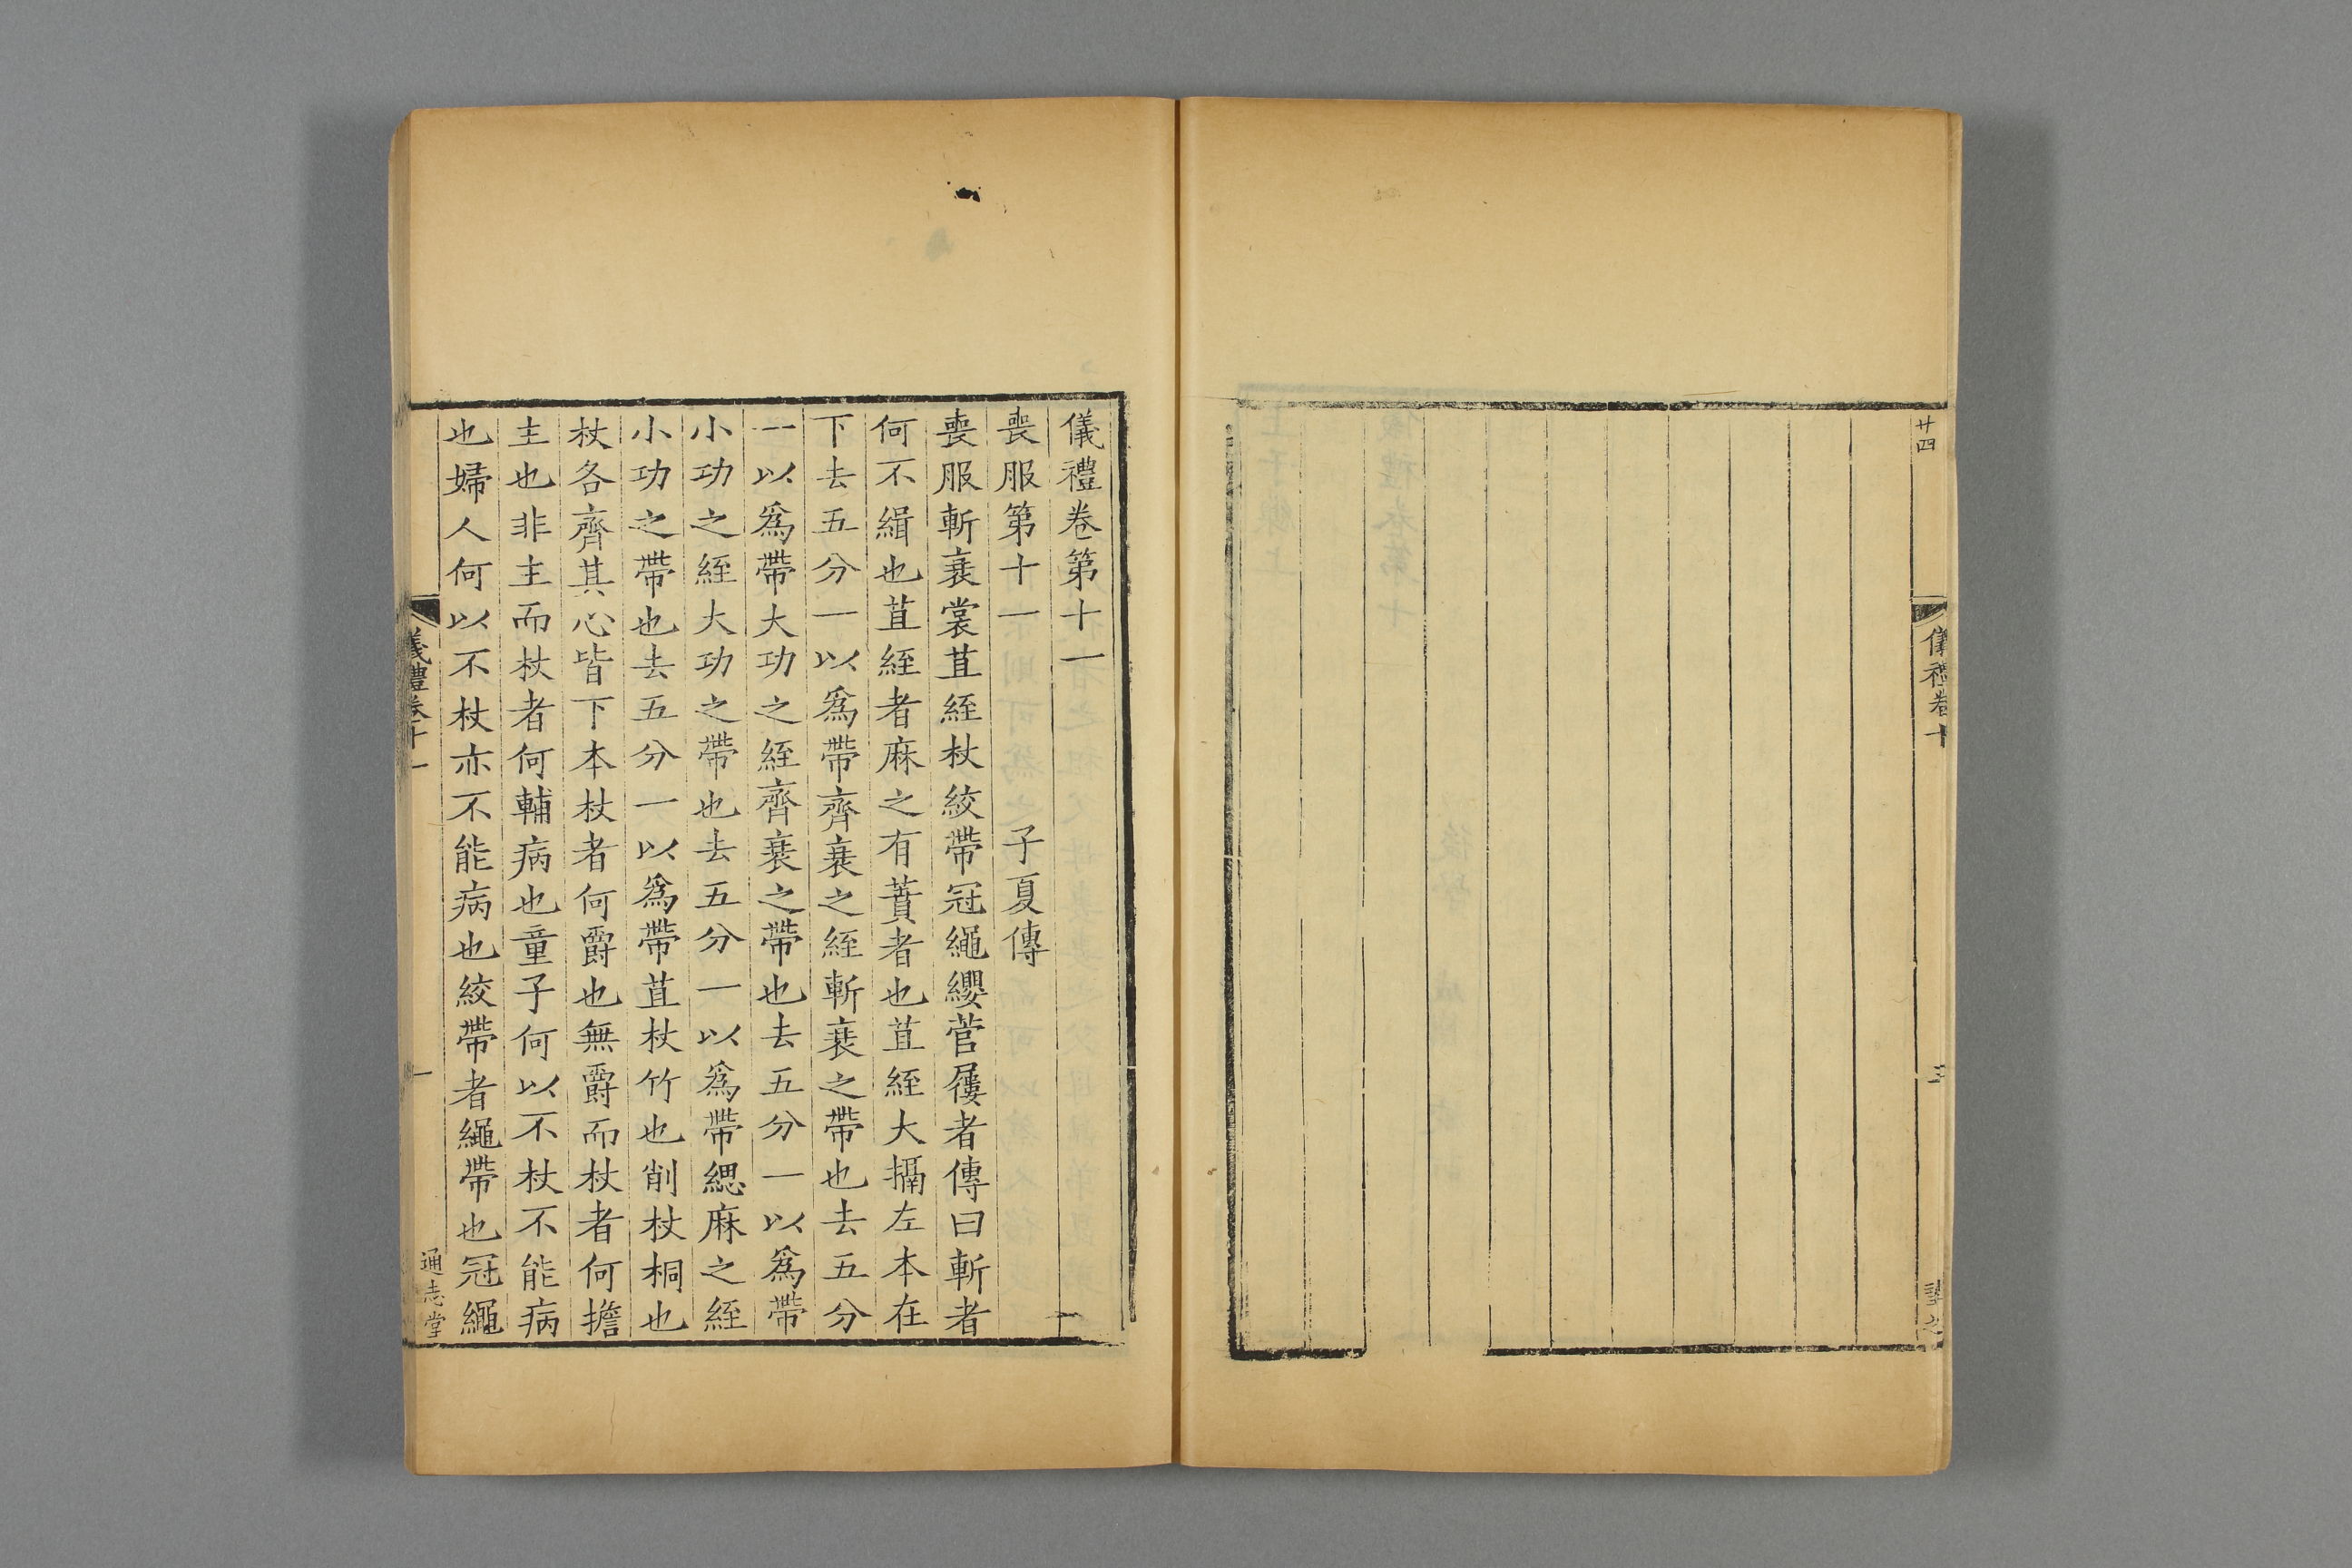 廿四
儀禮卷十
儀禮卷第十一
喪服第十一 子夏傳
喪服斬衰裳苴絰杖絞帶冠繩纓菅屨者傳曰斬者
何不緝也苴絰者麻之有蕡者也苴絰大搹左本在
下去五分一以爲帶齊衰之絰斬衰之帶也去五分
一以爲帶大功之絰齊衰之帶也去五分一以爲帶
小功之絰大功之帶也去五分一以爲帶緦麻之絰
小功之帶也去五分一以爲帶苴杖竹也削杖桐也
杖各齊其心皆下本杖者何爵也無爵而杖者何擔
主也非主而杖者何輔病也童子何以不杖不能病
也婦人何以不杖亦不能病也絞帶者繩帶也冠繩
儀禮卷十一
一
通志堂